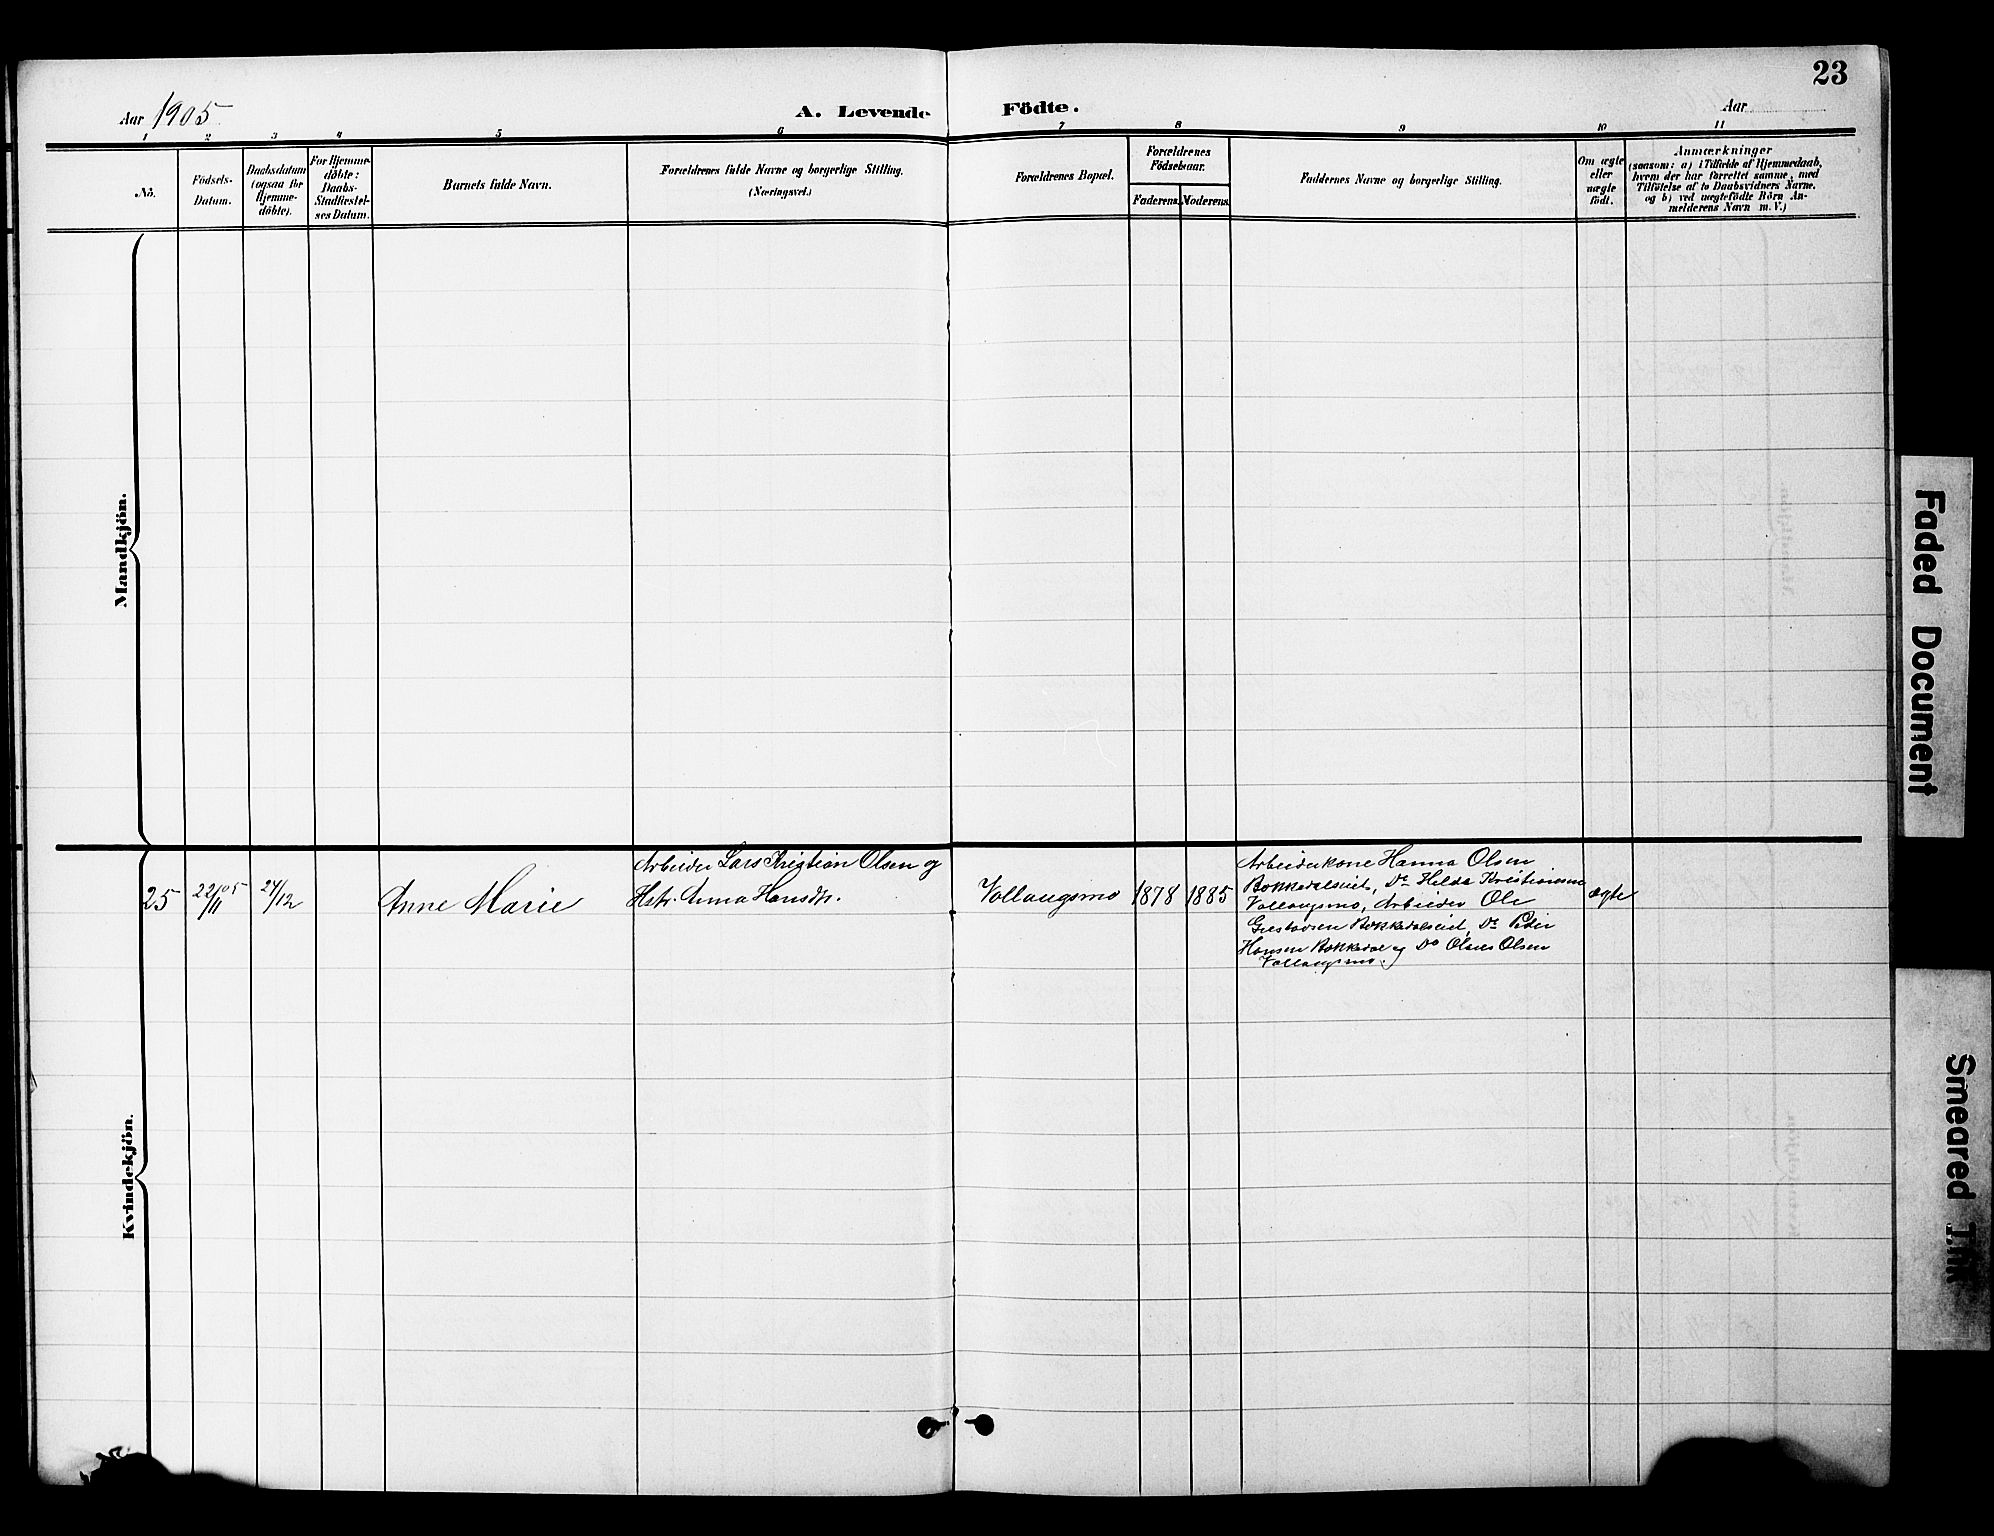 23
Aar 1905
A. Levende Födte.
Aar
1 2 3 4 5 6 7 8 9 10 11
Nö.
Födsels-Datum.
Daabsdatum (ogsaa for Hjemme-döbte).
For Hjemme-döbte: Daabs-Stadfæstel-ses Datum.
Barnets fulde Navn.
Forældrenes fulde Navne og borgerlige Stilling.
(Næringsvei.)
Forældrenes Bopæl.
Forældrenes Födselsaar.
Faderens. Moderens.
Faddernes Navne og borgerlige Stilling.
Om ægte eller uægte födt.
Anmærkninger
(saasom: a) i Tilfælde af Hjemmedaab,
hvem der har forrettet samme, med
Tilföielse af to Daabsvidners Navne.
og b) ved uægtefödte Börn An-
melderens Navn m. V.)
Mandkjön.
Kvindekjön.
25
22/11 05
24/12
Anne Marie
Arbeider Lars Kristian Olsen og
Hstr. Anna Hansdtr.
Vollaugsmo
1878
1885
Arbeiderkone Hanna Olsen
Bokkedalseiet, Do Helda Kristiansen
Vollaugsmo, Arbeider Ole
Gustavsen Bokkedalseiet, Do Peder
Hansen Bokkedal og Do Olsen
Vollaugsmo.
ægte
Faded Document
Smeared Ink